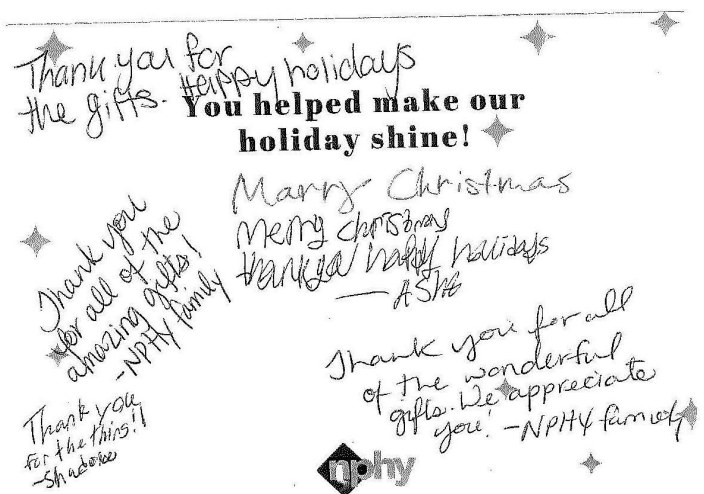 Thank you for
the gifts. Happy holidays
You helped make our
holiday shine!
Marry Christmas
merry christmas
thankyou happy holidays
— ASHE
Thank you
for all of the
amazing gifts!
-NPHY family
Thank you for all
of the wonderful
gifts. We appreciate
you! -NPHY family
Thank you
for the thins!!
-Shadow
nphy